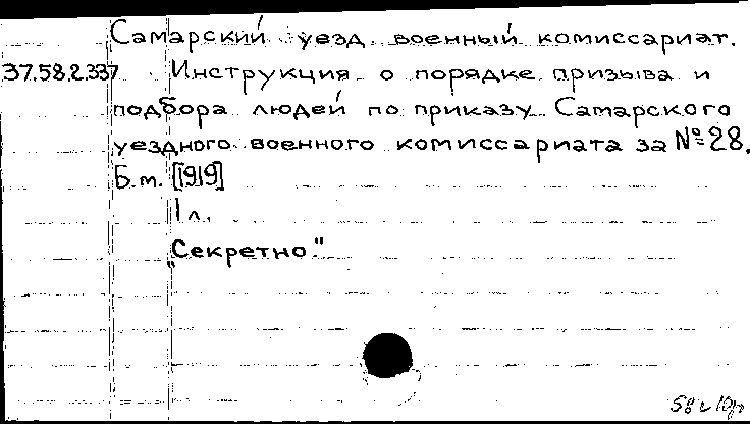 Самарский уезд. военный комиссариат.
37.58.2.337 Инструкция о порядке призыва и
подбора людей по приказу Самарского
уездного военного комиссариата за № 28.
Б.м. [1919]
1 л.
„Секретно"